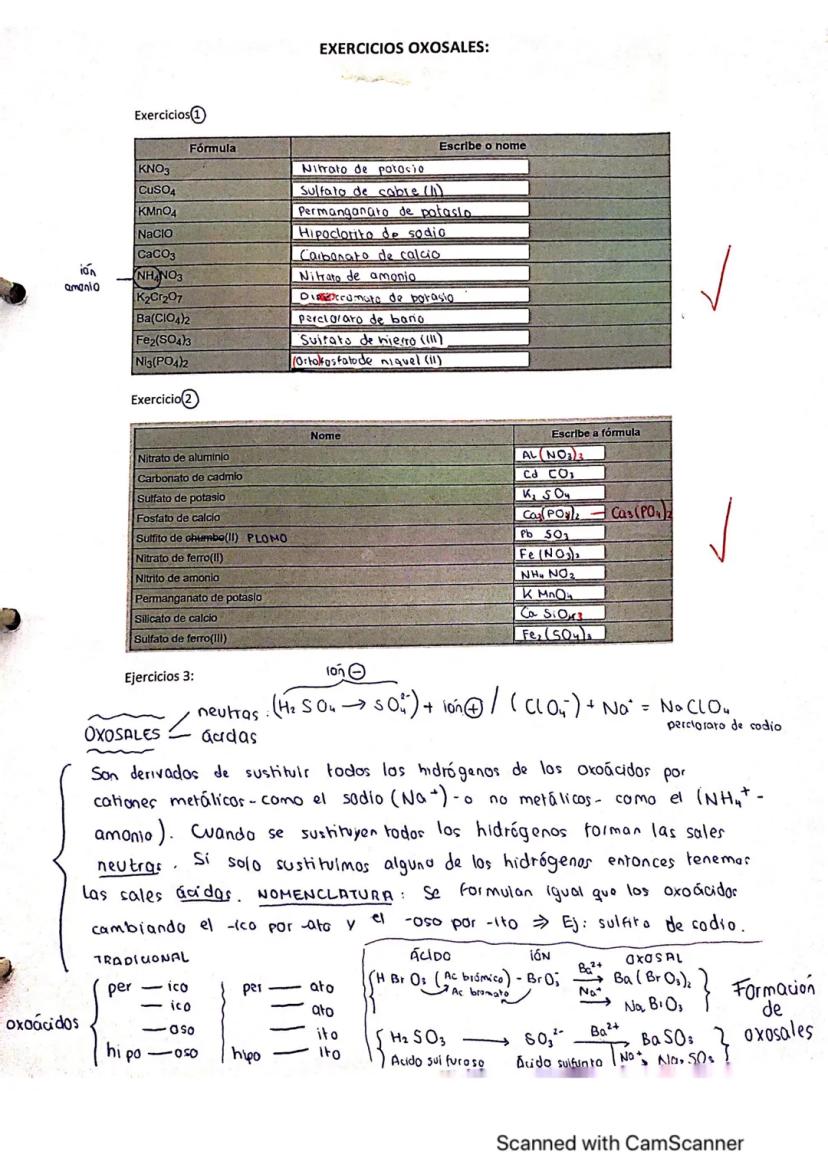 EXERCICIOS OXOSALES:
Exercicios 1
Fórmula Escribe o nome
KNO3 Nitrato de potasio
CuSO4 Sulfato de cobre (II)
KMnO4 Permanganato de potasio
NaClO Hipoclorito de sodio
CaCO3 Carbonato de calcio
ión amonio NH4NO3 Nitrato de amonio
K2Cr2O7 cromato de potasio
Ba(ClO4)2 Perclorato de bario
Fe2(SO4)3 Sulfato de hierro (III)
Ni3(PO4)2 Ortofosfato de niquel (II)
Exercicio 2
Nome Escribe a fórmula
Nitrato de aluminio AL(NO3)3
Carbonato de cadmio Cd CO3
Sulfato de potasio K2 SO4
Fosfato de calcio Ca3(PO4)2 — Ca3(PO4)2
Sulfito de chumbo(II) PLOMO Pb SO3
Nitrato de ferro(II) Fe(NO3)2
Nitrito de amonio NH4 NO2
Permanganato de potasio K MnO4
Silicato de calcio Ca SiO3
Sulfato de ferro(III) Fe2(SO4)3
Ejercicios 3:
ión ⊖
OXOSALES neutras: (H2 SO4 → SO4 2-) + ión ⊕ / (ClO4-) + Na+ = NaClO4
ácidas perclorato de sodio
Son derivados de sustituir todos los hidrógenos de los oxoácidos por
cationes metálicos - como el sodio (Na+) - o no metálicos - como el (NH4+ -
amonio). Cuando se sustituyen todos los hidrógenos forman las sales
neutras. Si solo sustituimos alguno de los hidrógenos entonces tenemos
las sales ácidas. NOMENCLATURA: Se formulan igual que los oxoácidos
cambiando el -ico por -ato y el -oso por -ito ⇒ Ej: sulfito de sodio.
TRADICIONAL
oxoácidos
per — ico per — ato
— ico — ato
— oso — ito
hipo — oso hipo — ito
ÁCIDO IÓN OXOSAL
H Br O3 (Ac brómico) - BrO3- Ba2+ → Ba(BrO3)2
Ac bromato Na+ → Na BrO3
H2 SO3 → SO3 2- Ba2+ → BaSO3
Ácido sulfuroso Ácido sulfito Na+ Na2 SO3
Formación
de
oxosales
Scanned with CamScanner